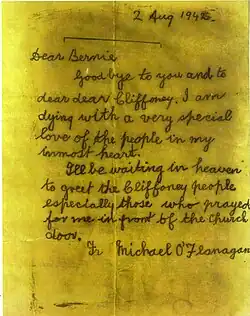 2 Aug 1942.
Dear Bernie
Goodbye to you and to
dear dear Cliffoney. I am
dying with a very special
love of the people in my
inmost heart.
I'll be waiting in heaven
to greet the Cliffoney people
especially those who prayed
for me in front of the church
door.
Fr Michael O'Flanagan